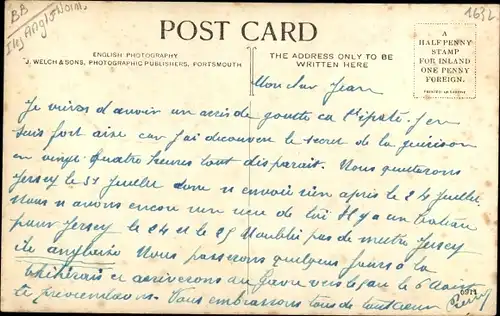 BB
Ill Anglo Norm.
1632
POST CARD
ENGLISH PHOTOGRAPHY.
J. WELCH & SONS, PHOTOGRAPHIC PUBLISHERS, PORTSMOUTH
THE ADDRESS ONLY TO BE
WRITTEN HERE
A
HALFPENNY
STAMP
FOR INLAND
ONE PENNY
FOREIGN.
Mon cher Jean
Je viens d'avoir un accès de goutte ca t'épate. J'en
suis fort aise car j'ai découvert le secret de la guérison
en vingt quatre heures tout disparait. Nous quitterons
Jersey le 31 Juillet donc n'envoie rien après le 24 Juillet.
Nous n'avons encore rien de lui Il y a un bateau
pour Jersey le 24 et le 25 N'oublie pas de mettre Jersey
île anglaise Nous passerons quelques jours à la
et arriverons au Havre vers le 6 Août
te préviendrons. Nous embrassons tous de tout cœur
0911